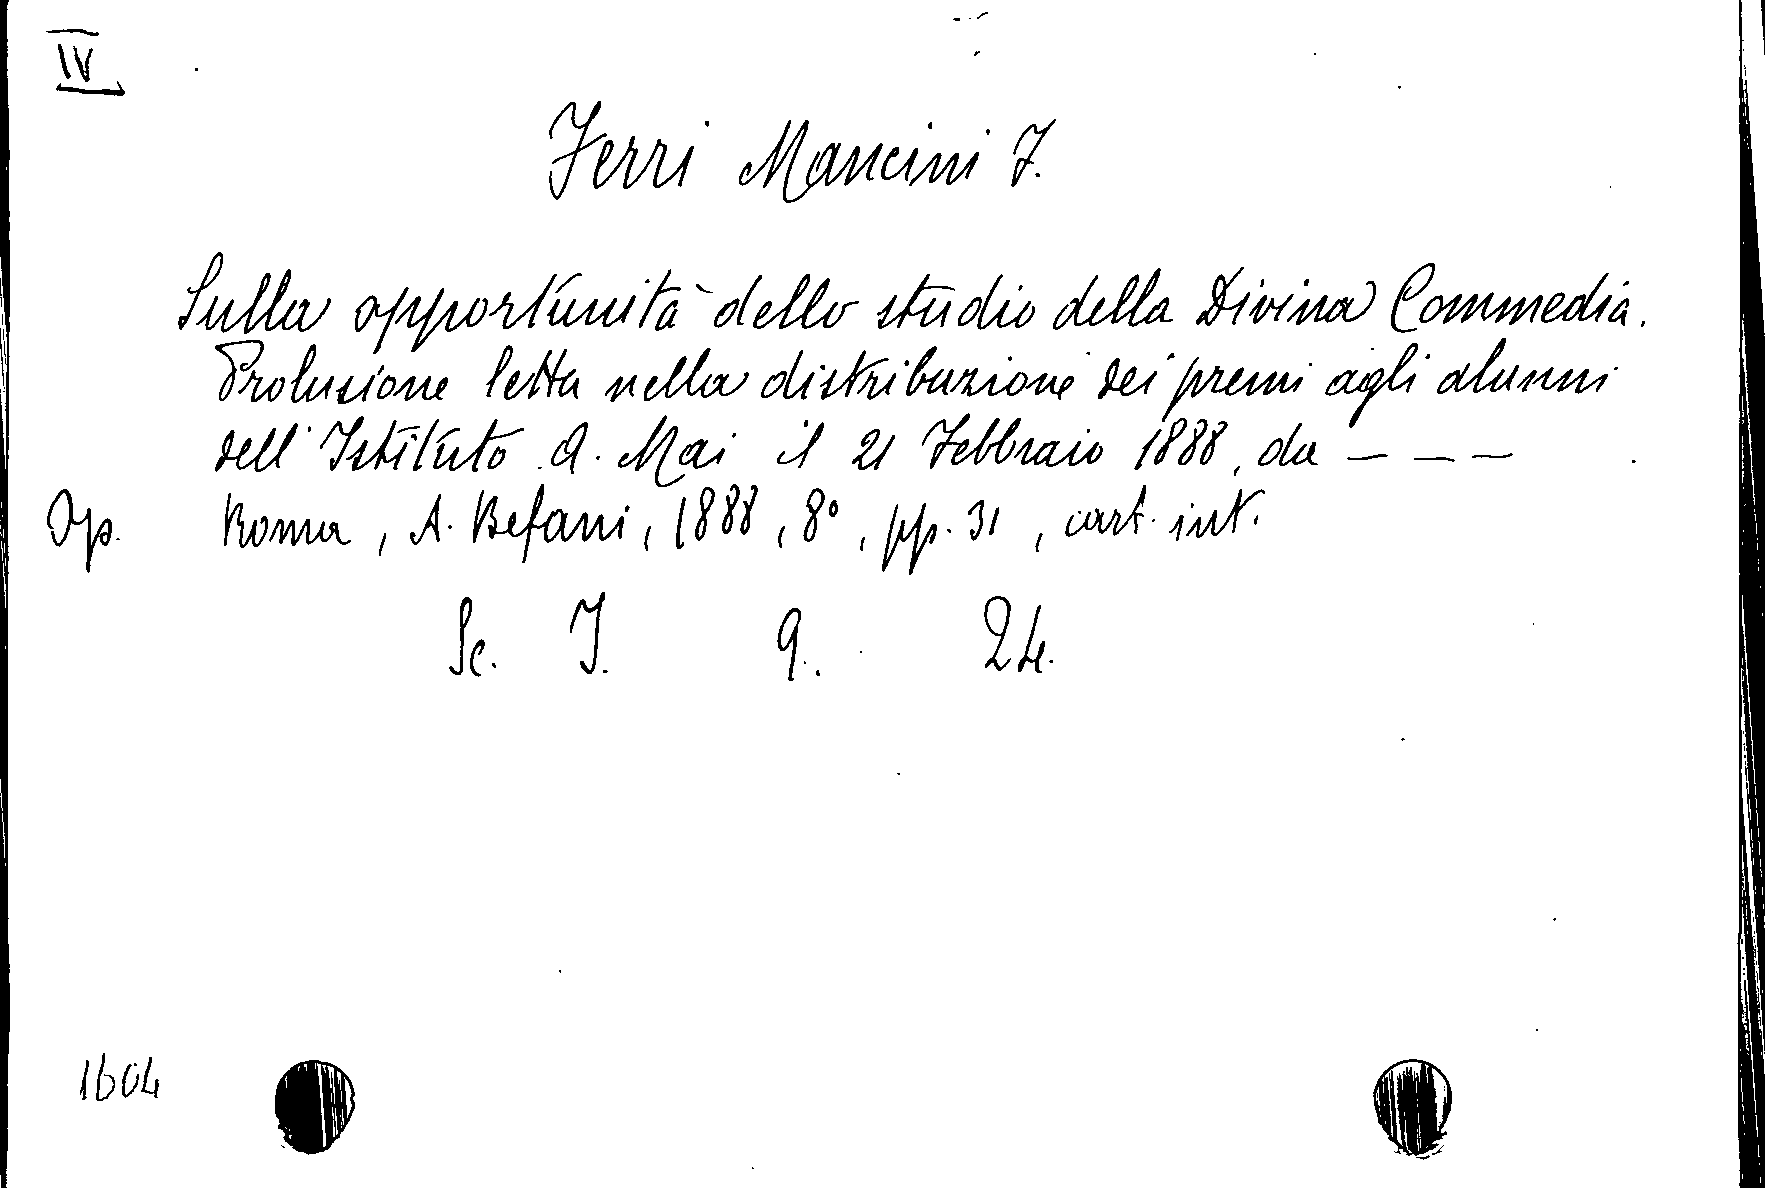 IV
Ferri Mancini F.
Sulla opportunità dello studio della Divina Commedia.
Prolusione letta nella distribuzione dei premi agli alunni
dell'Istituto A. Mai il 21 Febbraio 1888, da _ _ _
Op. Roma, A. Befani, 1888, 8°, pp. 31, cart. int.
Sc. I. 9. 24.
1604